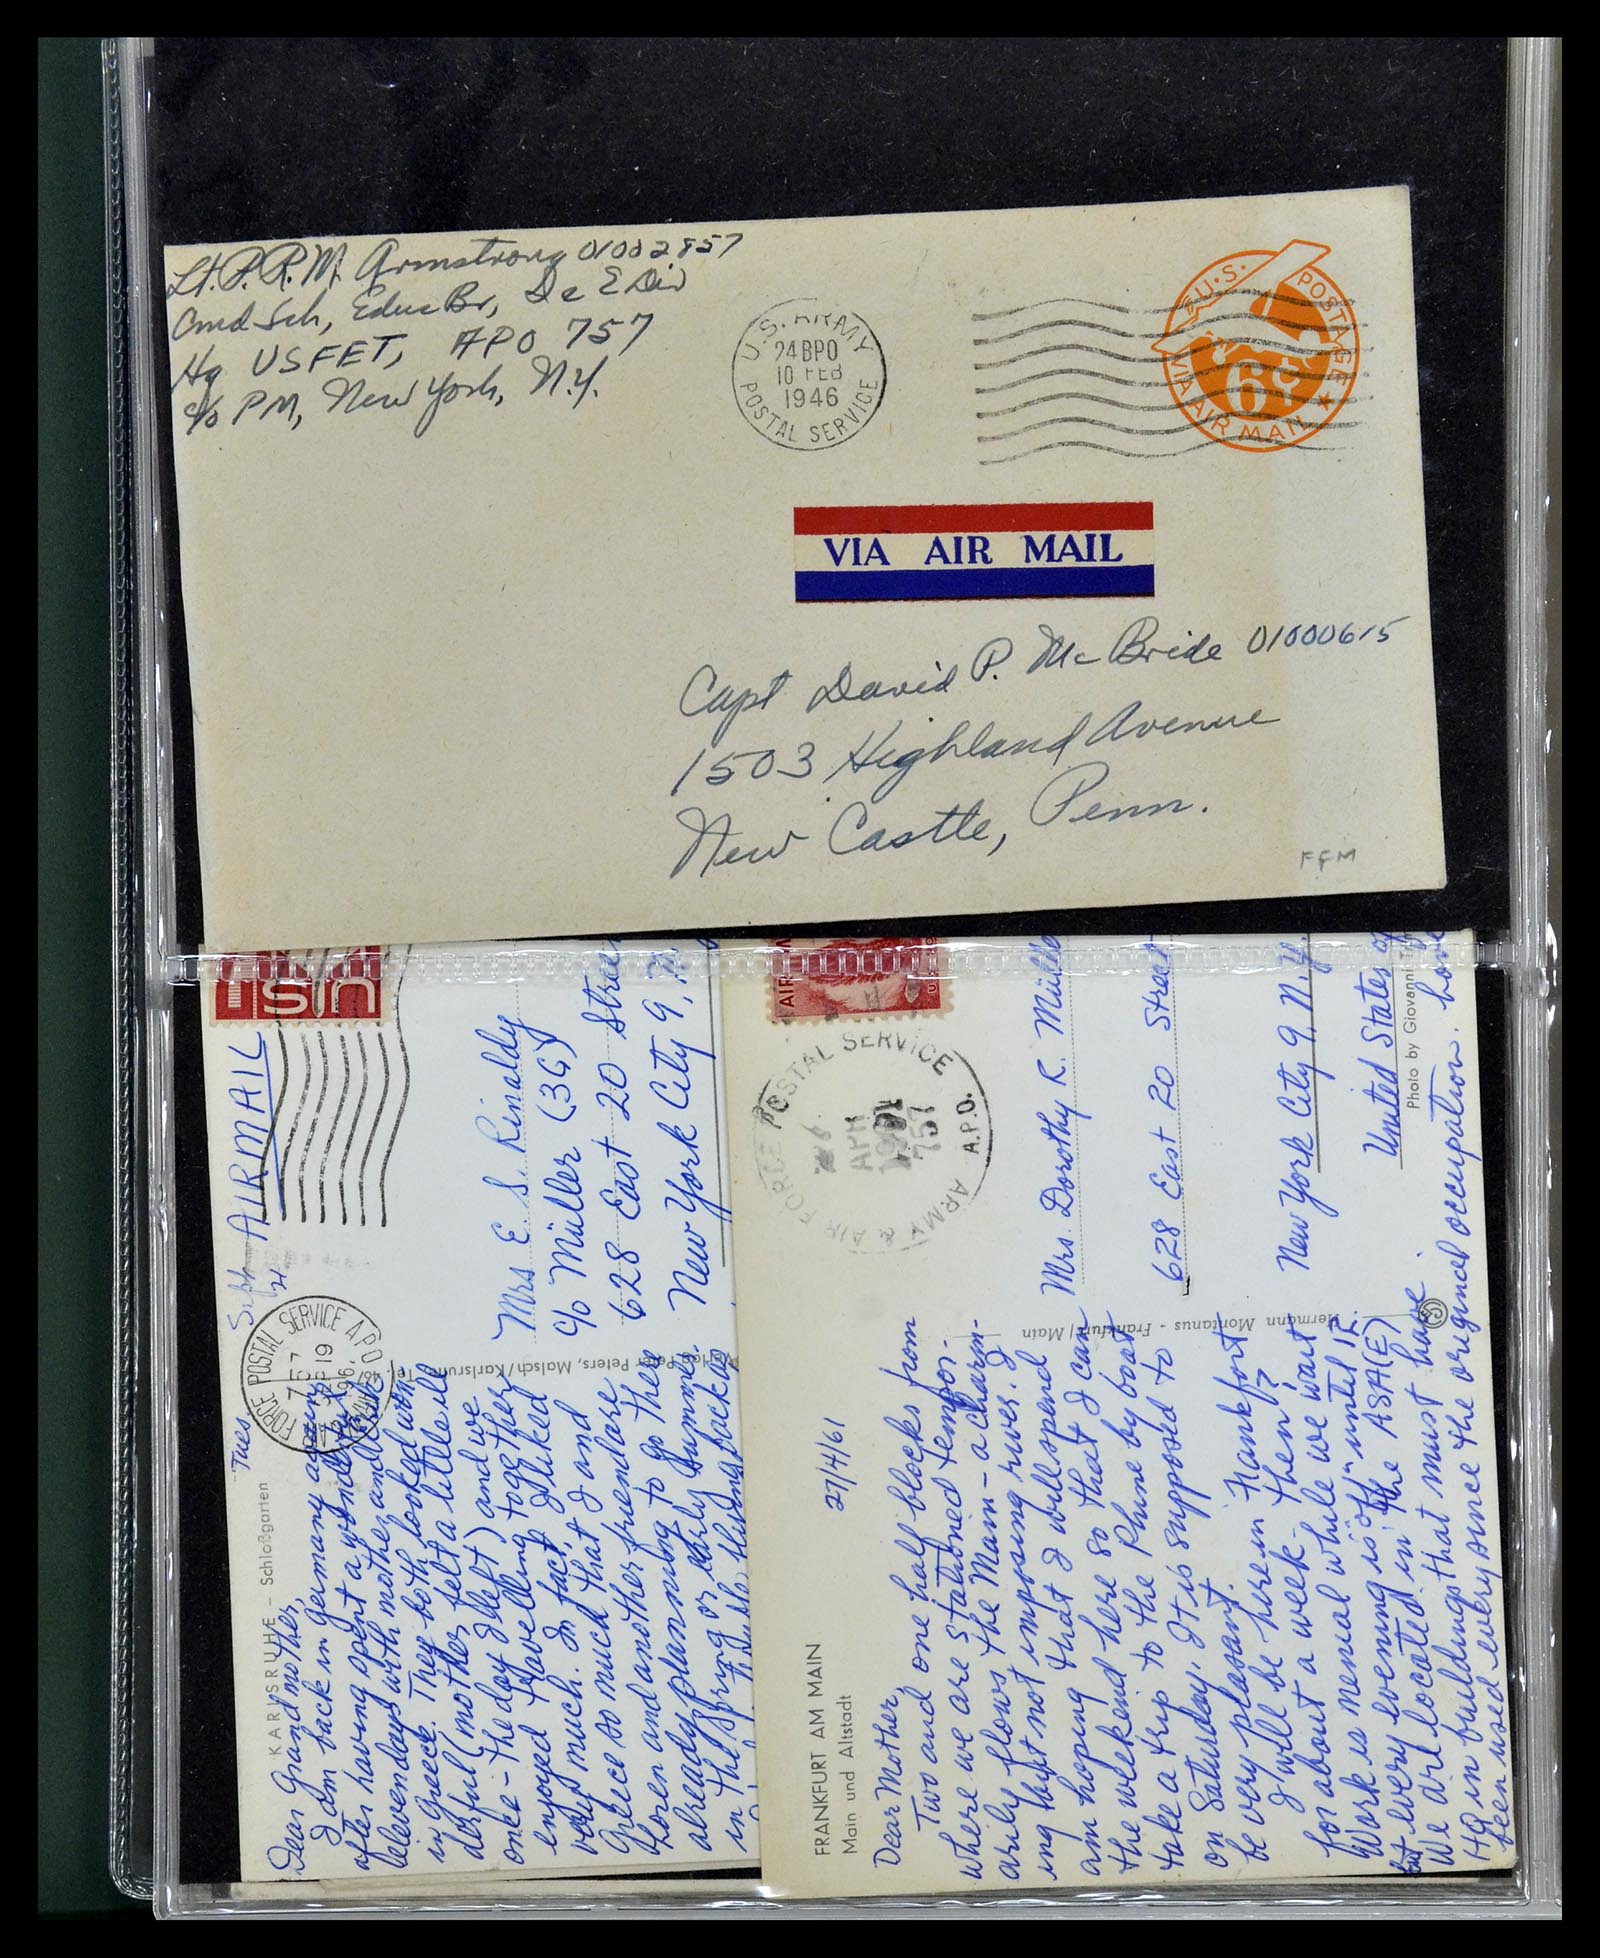 Lt. P. R. M. Armstrong 01002857
Cmd Sch, Educ Br, I & E Div
Hq USFET, APO 757
c/o PM, New York, N.Y.
U.S. ARMY
24BPO
10 FEB
1946
POSTAL SERVICE
U.S. POSTAGE
6¢
VIA AIR MAIL
VIA AIR MAIL
Capt David P. McBride 01000615
1503 Highland Avenue
New Castle, Penn.
FFM
US
AIRMAIL
FORCE POSTAL SERVICE A.P.O.
757
19
Tues
KARLSRUHE – Schloßgarten
Dear Grandmother,
I am back in Germany again
after having spent a wonderful
eleven days with mother and
in Greece. They both looked won-
derful (mother felt a little ill
one – the day I left) and we
enjoyed travelling together
very much. In fact, I liked
Greece so much that I and
Loren and another friend are
already planning to go there
in the spring or early summer.
Peters, Malsch/Karlsruhe
Mrs E. S. Rinaldy
c/o Müller (3G)
628 East 20 Street
New York City 9, N.Y.
AIR
ARMY & AIR FORCE POSTAL SERVICE
APR
757
A.P.O.
FRANKFURT AM MAIN
Main und Altstadt
27/4/61
Dear Mother,
Two and one half blocks from
where we are stationed tempor-
arily flows the Main – a charm-
ing but not imposing river. I
am hoping that I will spend
the weekend here so that I can
take a trip to the Rhine by boat
on Saturday. It is supposed to
be very pleasant.
I will be here in Frankfort
for about a week – then?
Work is menial while we wait
but every evening is "off" until 12.
We are located in the ASA(E)
HQ in buildings that must have
been used every since the original occupation. Love
Hermann Montanus - Frankfurt/Main
Mrs. Dorothy R. Müller
628 East 20 Street
New York City 9, N.Y.
United States of
Photo by Giovanni